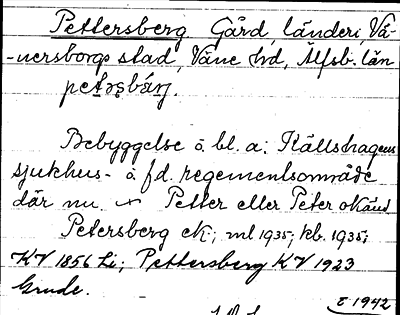 Pettersberg Gård, länderi, Vä-
-nersborgs stad, Väne hd, Älfsb. län
Bebyggelse å bl. a. Källshagens
sjukhus- å f.d. regementsområde
där nu. Petter eller Peter okänd
Petersberg eK; ml 1935; kb. 1935;
KV 1856 Li; Pettersberg KV 1923
Grude.
E 1942